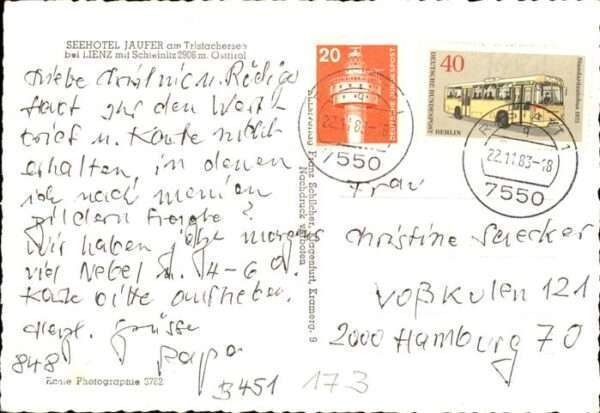 SEEHOTEL JAUFER am Tristachersee
bei LIENZ mit Schleinitz 2906 m. Osttirol
Liebe Christine u. Rüdiger
Habt Ihr den
Brief u. Karte nicht
erhalten, in denen
ich nach meinen
Bildern fragte?
Wir haben jetzt morgens
viel Nebel u. 4-6 G.
Karte bitte aufheben.
Herzl. Grüsse
Papa
848
Echte Photographie 3782
B451
173
Franz Schilcher, Klagenfurt, Kramerg. 9
Nachdruck verboten
20
DEUTSCHE BUNDESPOST
40
DEUTSCHE BUNDESPOST
BERLIN
Standardautobus 1973
7550
22.11.83-18
7550
Frau
Christine Schecker
Voßkulen 121
2000 Hamburg 70